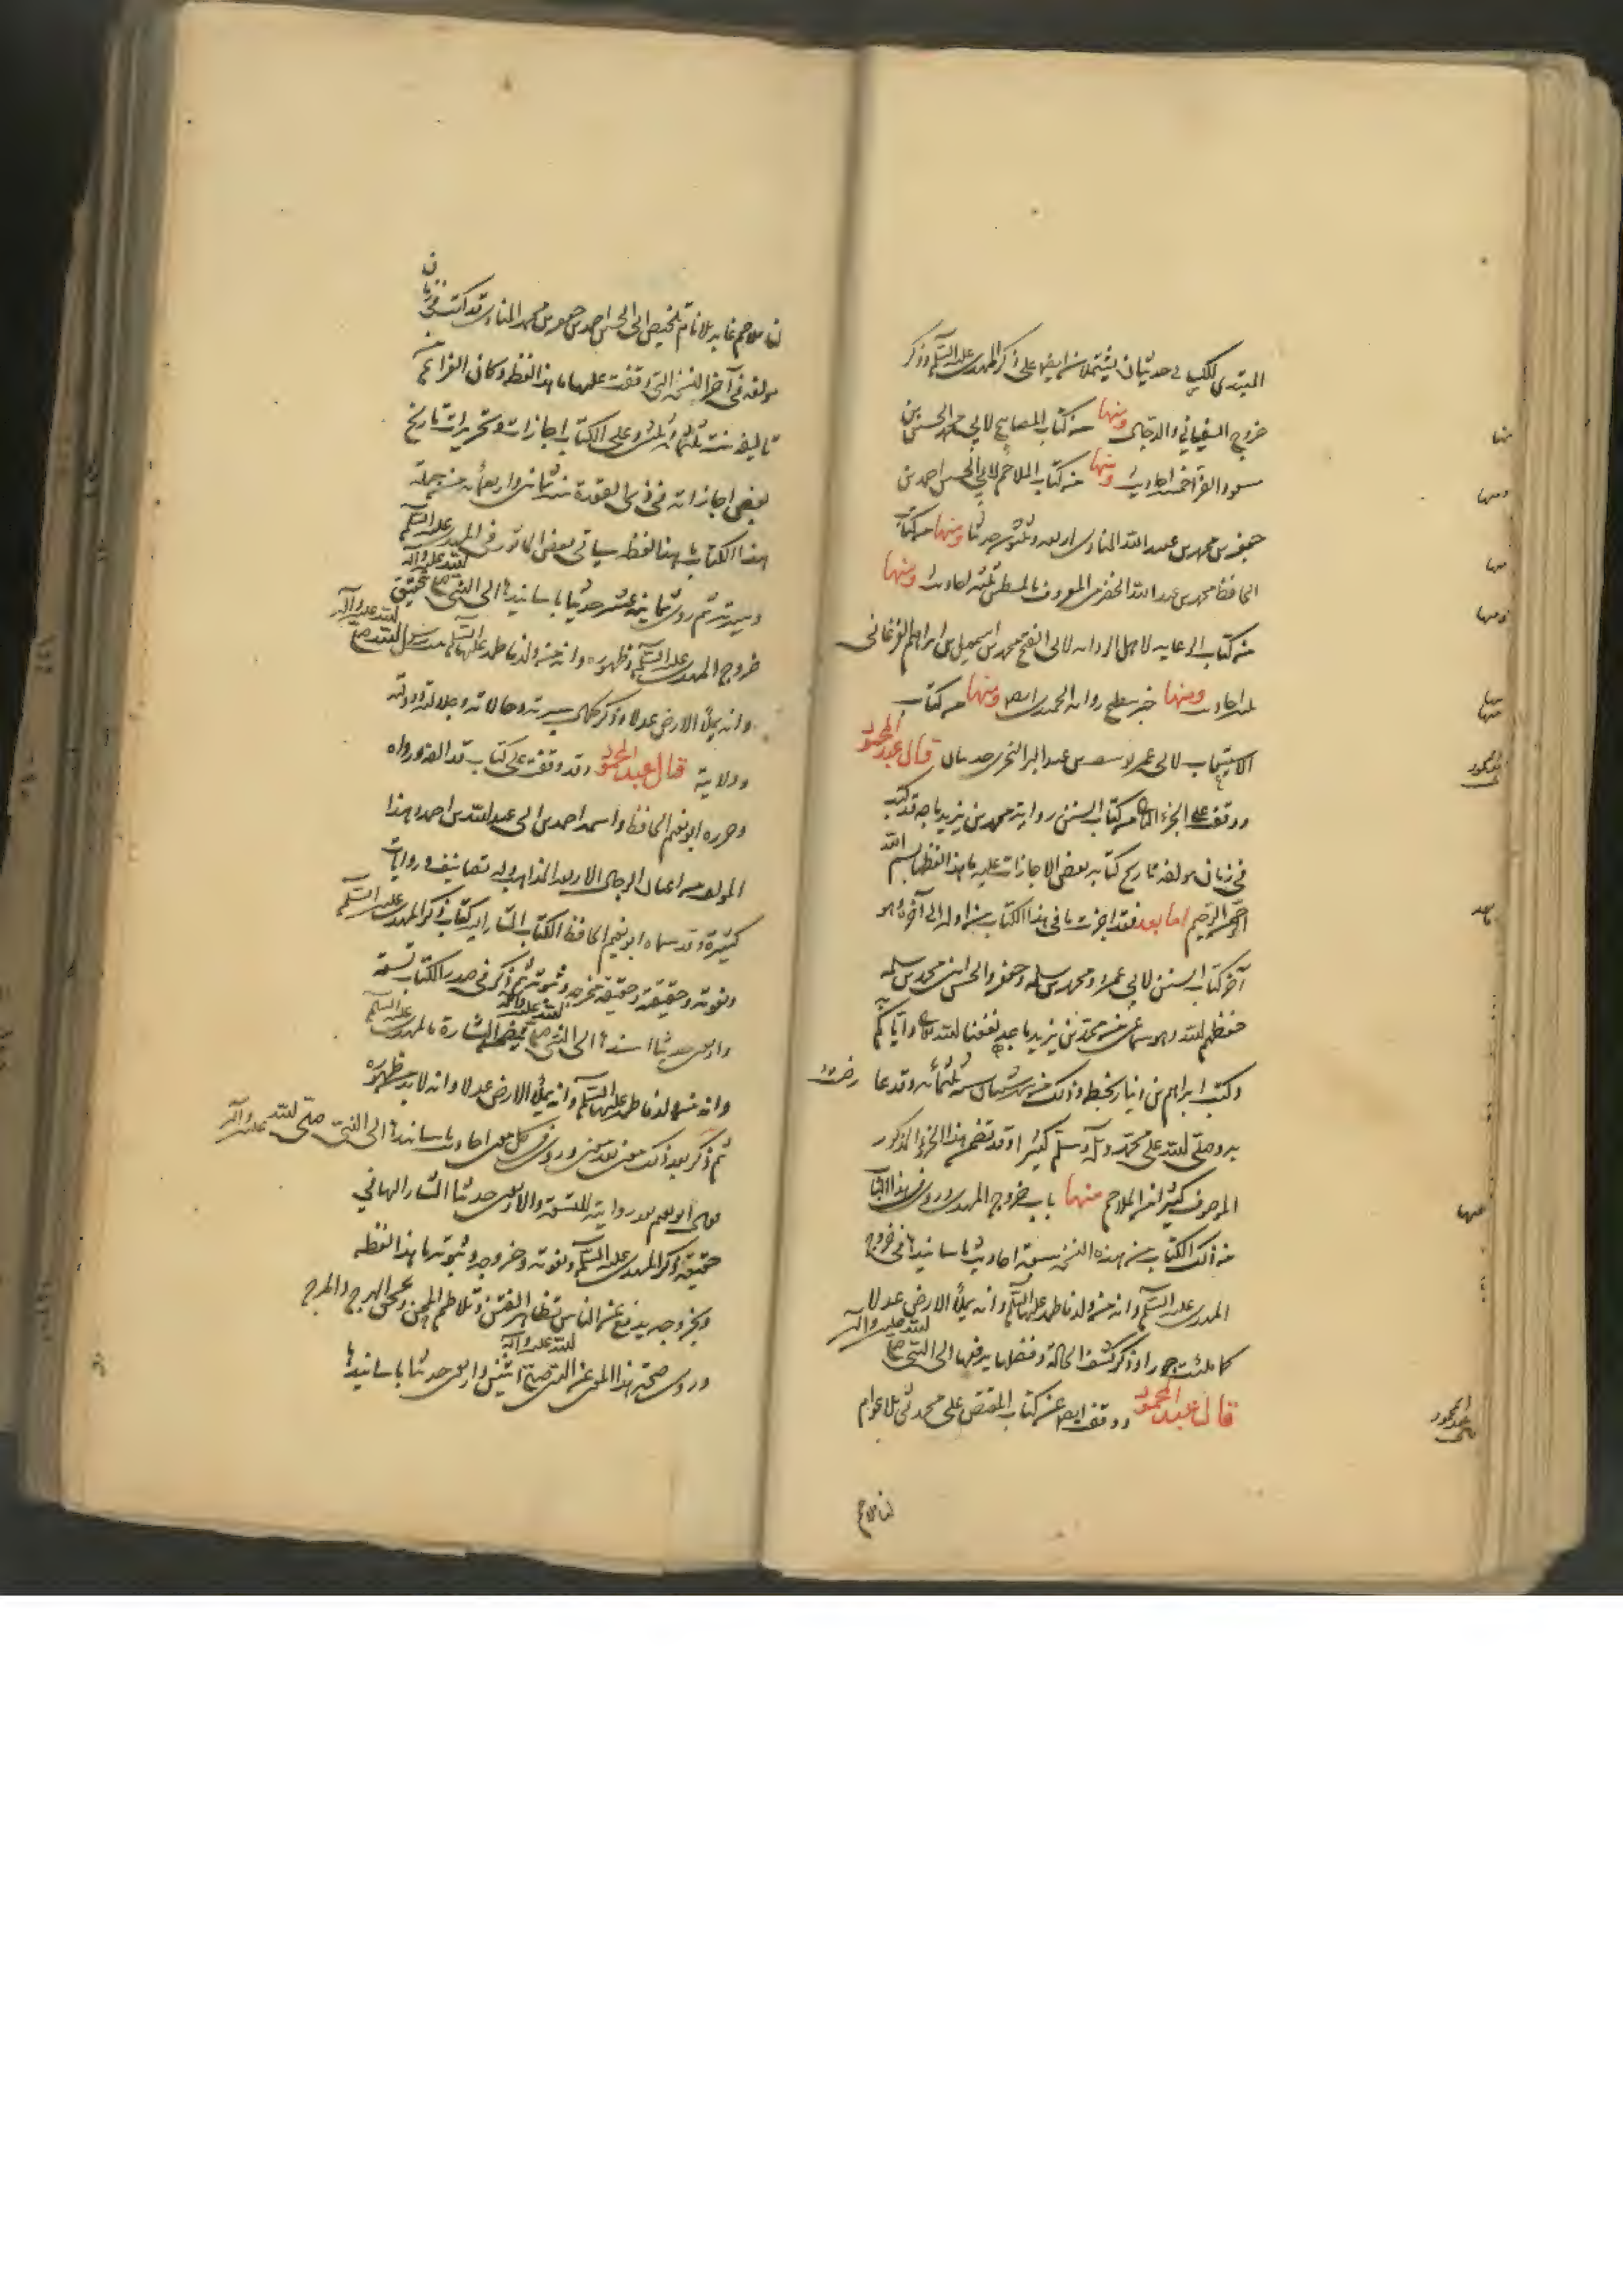 المبتدى للكسائي حديثان يشتملان ايضا على ذكر المهدى عليه السلم وذكر
خروج السفياني والدجال ومنها من كتاب المصابيح لابي محمد الحسين بن
مسعود الفرا خمسة احاديث ومنها من كتاب الملاحم لابي الحسن احمد بن
جعفر بن محمد بن عبيد الله المنادى اربعة وثلثون حديثا ومنها من كتاب
الحافظ محمد بن عبد الله الحضرمى المعروف بالمطين ثلثة احاديث ومنها
من كتاب الرعايه لاهل الروايه لابى الفتح محمد بن اسمعيل بن ابراهيم الفرغانى
ثلثة احاديث ومنها خبر سطيح رواية الحميدى ايضا ومنها من كتاب
الاستيعاب لابى عمر يوسف بن عبد البر النمرى حديثان قال عبد المحمود
ووقفت على الجزء الثانى من كتاب السنن رواية محمد بن يزيد ماجه قد كتب
فى زمان مولفه تاريخ كتابه بعض الاجازات عليه ما هذا لفظها بسم الله
الرحمن الرحيم اما بعد فقد اجزت ما فى هذا الكتاب من اوله الى آخره وهو
آخر كتاب السنن لابي عمرو ومحمد بن سلمه وجعفر والحسن ابنى محمد بن سلمه
حفظهم الله وهو سماعى من محمد بن يزيد ماجه نفعنا الله به واياكم
وكتب ابراهيم بن دينار بخطه وذلك في شهر شعبان سنة ثلثمائه وقد عارضت
به وصلى الله على محمد وآله وسلم كثيرا وقد تضمن هذا الجزء المذكور
الموصوف كثيرا من الملاحم منها باب خروج المهدى وروى في هذا الباب
من ذلك الكتاب من هذه النسخة سبعة احاديث باسانيدها في خروج
المهدى عليه السلم وانه من ولد فاطمه عليها السلم وانه يملأ الارض عدلا
كما ملئت جورا وذكر كشف الحالة وفضلها يرفعها الى النبى صلى الله عليه وآله
قال عبد المحمود ووقفت ايضا على كتاب المقتص على محدثى الاعوام
لنا ملاحم
لنا ملاحم غابر الايام تلخيص ابى الحسن احمد بن جعفر بن محمد المنادى قد كتب في زمان
مولفه في آخر النسخة التى وقفت عليها ما هذا لفظه وكان الفراغ من
تاليفه سنة ثلثمائه وثلثين وعلى الكتاب اجازات وتجزيرات تاريخ
بعض اجازاته فى ذى القعدة سنه ثمانين واربعمائه من جملة
هذا الكتاب ما هذا لفظه سياتى بعض المأثور فى المهدى عليه السلم
وسيرته ثم روى ثمانية عشر حديثا باسانيدها الى النبى صلى الله عليه وآله بتحقيق
خروج المهدى عليه السلم وظهوره وانه من ولد فاطمه عليها السلم بنت رسول الله صلى الله عليه وآله
وانه يملأ الارض عدلا وذكر كمال سيرته وحالاته وجلالته ودولته
وولايته قال عبد المحمود وقد وقفت على كتاب قد الفه ورواه
وحرره ابو نعيم الحافظ واسمه احمد بن ابى عبد الله بن احمد وهذا
المولف من اعيان الرجال الاربعه المذاهب وله تصانيف وروايات
كثيرة وقد سماه ابو نعيم الحافظ الكتاب المشار اليه كتاب ذكر المهدى عليه السلم
ونعوته وحقيقة مخرجه وثبوته ثم ذكر فى صدر الكتاب تسعة
واربعين حديثا اسندها الى النبى صلى الله عليه وآله يتضمن البشارة بالمهدى عليه السلم
وانه من ولد فاطمه عليها السلم وانه يملأ الارض عدلا وانه لابد من ظهوره
ثم ذكر بعد ذلك معنى بعد معنى وروى فى كل معنى احاديث باسانيدها الى النبى صلى الله عليه وآله
فقال ابو نعيم بعد روايته للتسعة والاربعين حديثا المشار اليها في
حقيقة ذكر المهدى عليه السلم ونعوته وخروجه وثبوته ما هذا لفظه
وبخروجه يدفع عن الناس تظاهر الفتن وتلاطم المحن ويمحق الهرج والمرج
وروى صحة هذا المعنى عن النبى صلى الله عليه وآله اثنين واربعين حديثا باسانيدها